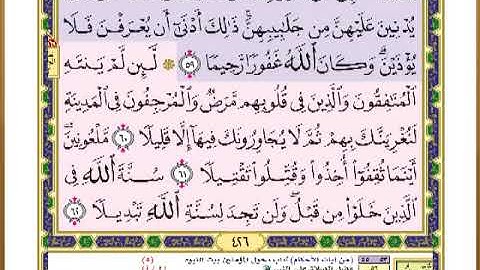 يُدۡنِينَ عَلَيۡهِنَّ مِن جَلَٰبِيبِهِنَّۚ ذَٰلِكَ أَدۡنَىٰٓ أَن يُعۡرَفۡنَ فَلَا
يُؤۡذَيۡنَۗ وَكَانَ ٱللَّهُ غَفُورٗا رَّحِيمٗا ٥٩ ۞ لَّئِن لَّمۡ يَنتَهِ
ٱلۡمُنَٰفِقُونَ وَٱلَّذِينَ فِي قُلُوبِهِم مَّرَضٞ وَٱلۡمُرۡجِفُونَ فِي ٱلۡمَدِينَةِ
لَنُغۡرِيَنَّكَ بِهِمۡ ثُمَّ لَا يُجَاوِرُونَكَ فِيهَآ إِلَّا قَلِيلٗا ٦٠ مَّلۡعُونِينَۖ
أَيۡنَمَا ثُقِفُوٓاْ أُخِذُواْ وَقُتِّلُواْ تَقۡتِيلٗا ٦١ سُنَّةَ ٱللَّهِ فِي
ٱلَّذِينَ خَلَوۡاْ مِن قَبۡلُۖ وَلَن تَجِدَ لِسُنَّةِ ٱللَّهِ تَبۡدِيلٗا ٦٢
٤٢٦